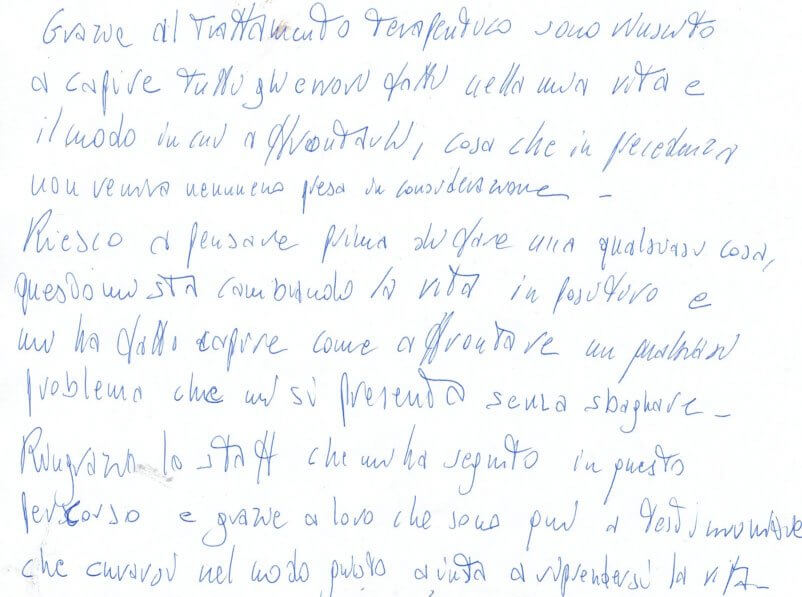 Grazie al trattamento terapeutico sono riuscito
a capire tutti gli errori fatti nella mia vita e
il modo in cui affrontarli, cosa che in precedenza
non veniva nemmeno presa in considerazione -
Riesco a pensare prima di fare una qualsiasi cosa,
questo mi sta cambiando la vita in positivo e
mi ha fatto capire come affrontare un qualsiasi
problema che mi si presenta senza sbagliare -
Ringrazio lo staff che mi ha seguito in questo
percorso e grazie a loro che sono qui a testimoniare
che curarsi nel modo giusto aiuta a riprendersi la vita -